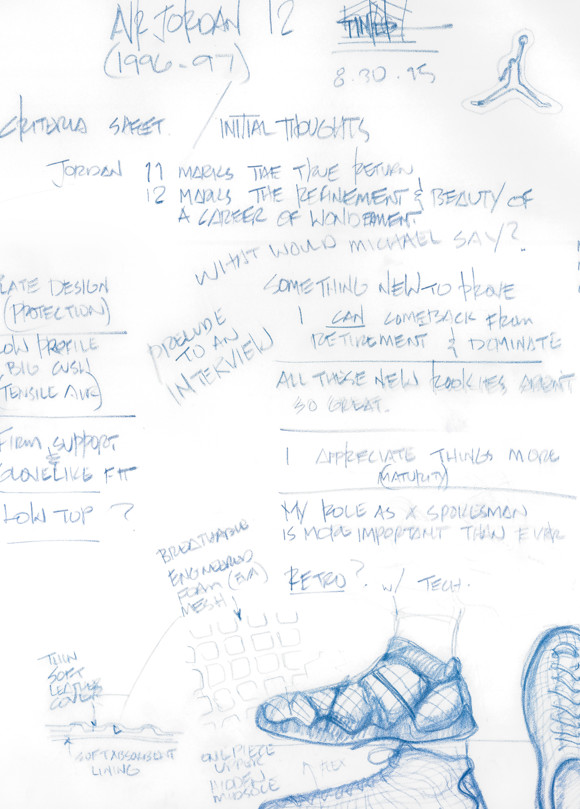 AIR JORDAN 12
(1996-97)
TINKER
8.30.95
CRITERIA SHEET.
INITIAL THOUGHTS
JORDAN 11 MARKS THE TRUE RETURN
12 MARKS THE REFINEMENT & BEAUTY OF
A CAREER OF WONDERMENT.
WHAT WOULD MICHAEL SAY?
PRELUDE
TO AN
INTERVIEW
SOMETHING NEW TO PROVE
I CAN COMEBACK FROM
RETIREMENT & DOMINATE
ALL THESE NEW ROOKIES AREN'T
SO GREAT.
I APPRECIATE THINGS MORE
(MATURITY)
MY ROLE AS A SPOKESMAN
IS MORE IMPORTANT THAN EVER
RETRO? w/ TECH.
LATE DESIGN
(PROTECTION)
LOW PROFILE
BIG CUSH
(TENSILE AIR)
FIRM SUPPORT
& GLOVELIKE FIT
LOW TOP ?
BREATHABLE
ENGINEERED
FOAM (EVA)
MESH
THIN
SOFT
LEATHER
COVERS
SOFT ABSORBENT
LINING
ONE PIECE
UPPER
HIDDEN
MIDSOLE
FLEX